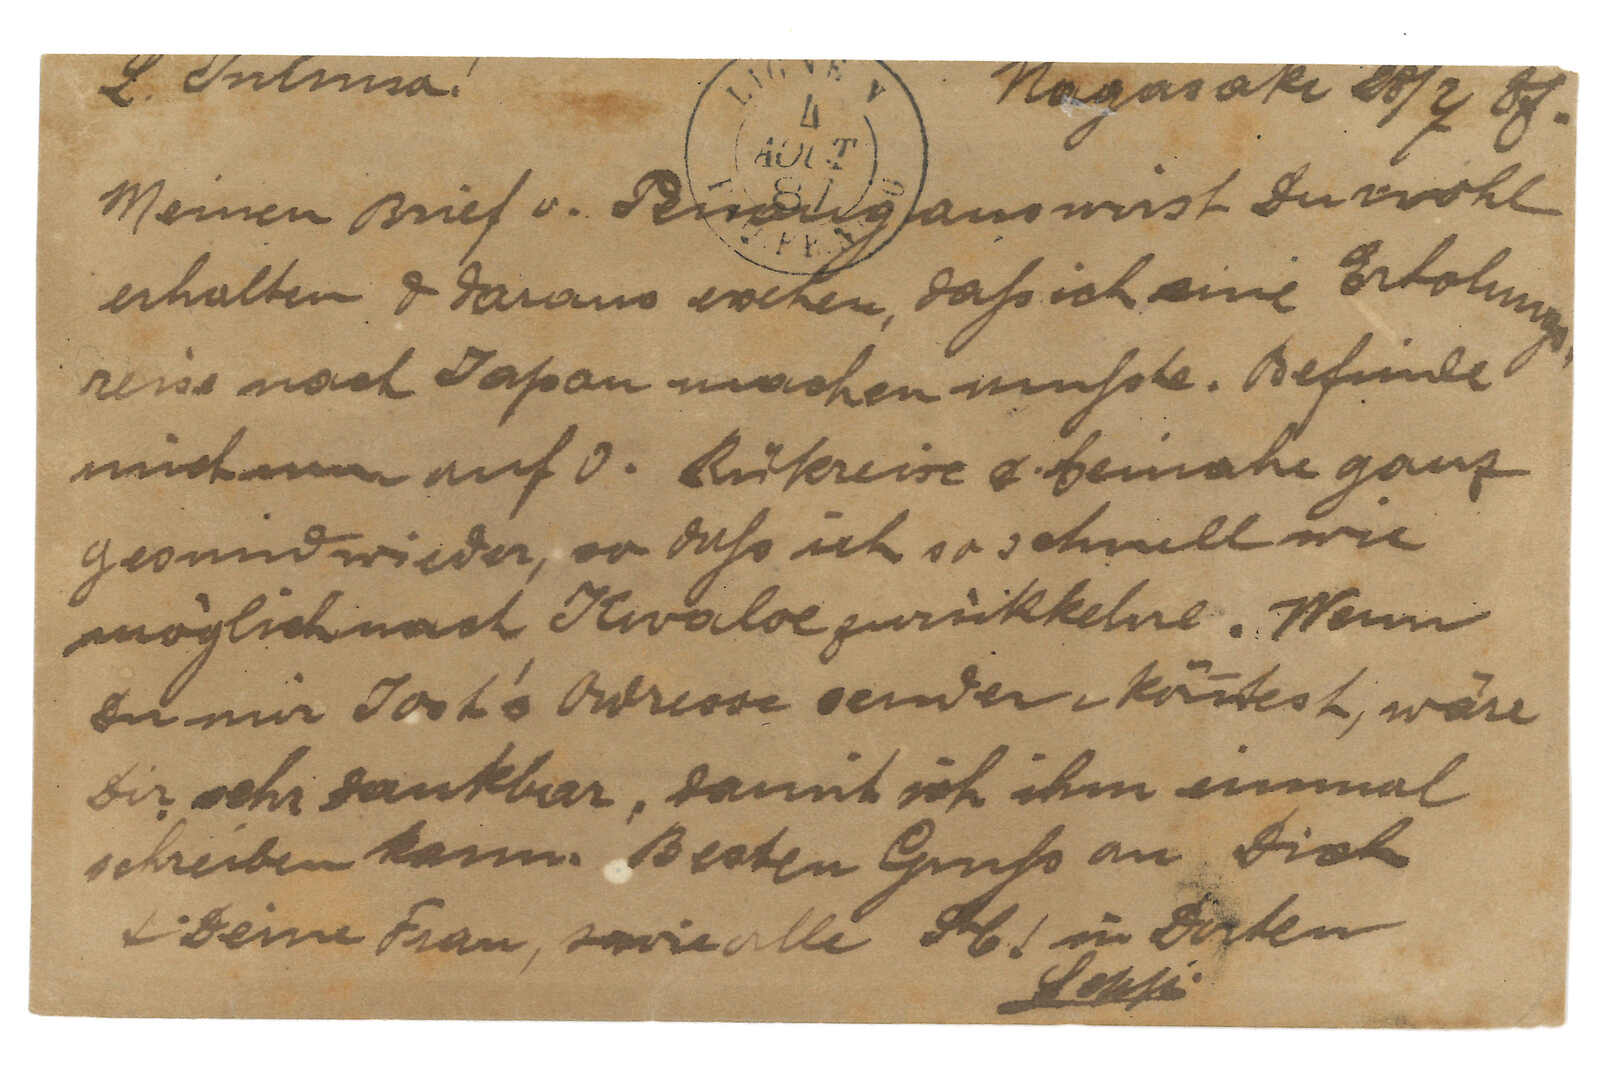 L. Intimsa! Nagasaki 28/7 87.
LIGNE N
4
AOUT
87
Meinen Brief v. Penang aus wirst Du wohl
erhalten & daraus ersehen, dass ich eine Erholungs-
reise nach Japan machen musste. Befinde
mich nun auf d. Rükreise & beinahe ganz
gesund wieder, so dass ich so schnell wie
möglich nach Kwaloe zurükkehre. Wenn
du mir Jost's Adresse senden könntest, wäre
Dir sehr dankbar, damit ich ihm einmal
schreiben kann. Besten Gruss an Dich
& Deine Frau, sowie alle in Dorten
Seppi